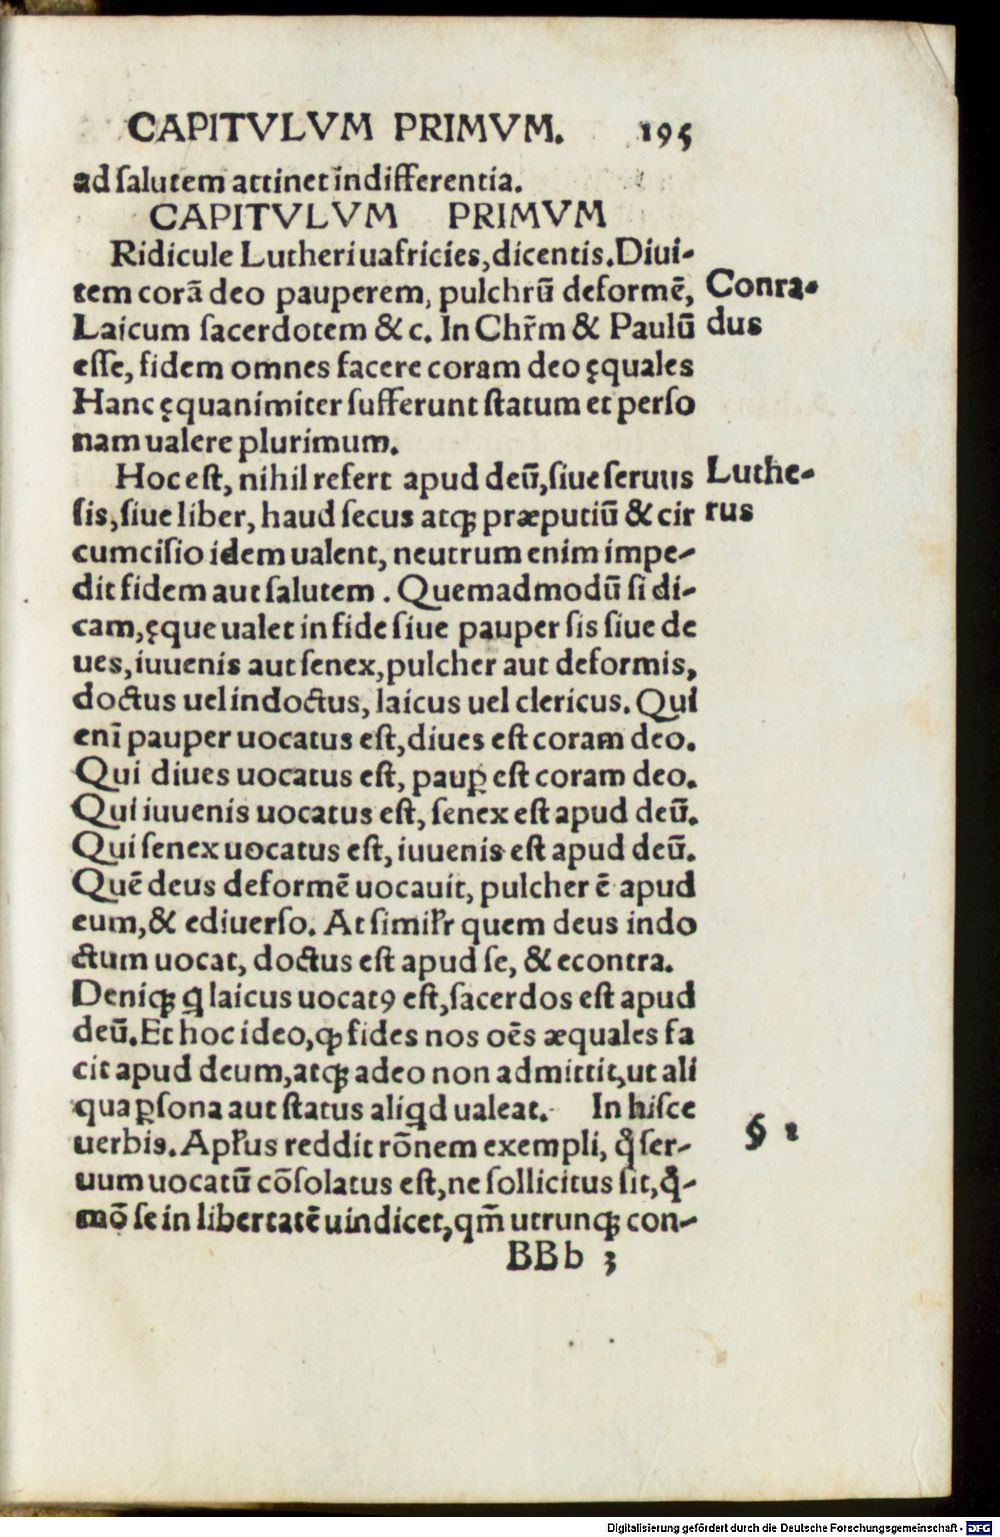 CAPITVLVM PRIMVM. 195
ad ſalutem attinet indifferentia.
CAPITVLVM PRIMVM
Ridicule Lutheri uafricies, dicentis. Diui-
tem corã deo pauperem, pulchrũ deformẽ,
Conra-
Laicum ſacerdotem & c. In Chr̃m & Paulũ
dus
eſſe, fidem omnes facere coram deo ęquales
Hanc ęquanimiter ſufferunt ſtatum et perſo
nam ualere plurimum.
Hoc eſt, nihil refert apud deũ, ſiue ſeruus
Luthe-
ſis, ſiue liber, haud ſecus atqꝫ præputiũ & cir
rus
cumciſio idem ualent, neutrum enim impe-
dit fidem aut ſalutem . Quemadmodũ ſi di-
cam, ęque ualet in fide ſiue pauper ſis ſiue de
ues, iuuenis aut ſenex, pulcher aut deformis,
doctus uel indoctus, laicus uel clericus. Qui
enĩ pauper uocatus eſt, diues eſt coram deo.
Qui diues uocatus eſt, pauꝑ eſt coram deo.
Qui iuuenis uocatus eſt, ſenex eſt apud deũ.
Qui ſenex uocatus eſt, iuuenis eſt apud deũ.
Quẽ deus deformẽ uocauit, pulcher ẽ apud
eum, & ediuerſo. At ſimiꝉr quem deus indo
ctum uocat, doctus eſt apud ſe, & econtra.
Deniqꝫ ꝗ laicus uocatꝰ eſt, ſacerdos eſt apud
deũ. Et hoc ideo, ꝙ fides nos oẽs æquales fa
cit apud deum, atqꝫ adeo non admittit, ut ali
qua ꝑſona aut ſtatus aliꝗd ualeat. In hiſce
uerbis. Apꝉus reddit rõnem exempli, q̃ ſer-
§ 2
uum uocatũ cõſolatus eſt, ne ſollicitus ſit, q̃-
mõ ſe in libertatẽ uindicet, qm̃ utrunqꝫ con-
BBb 3
Digitalisierung gefördert durch die Deutsche Forschungsgemeinschaft - DFG